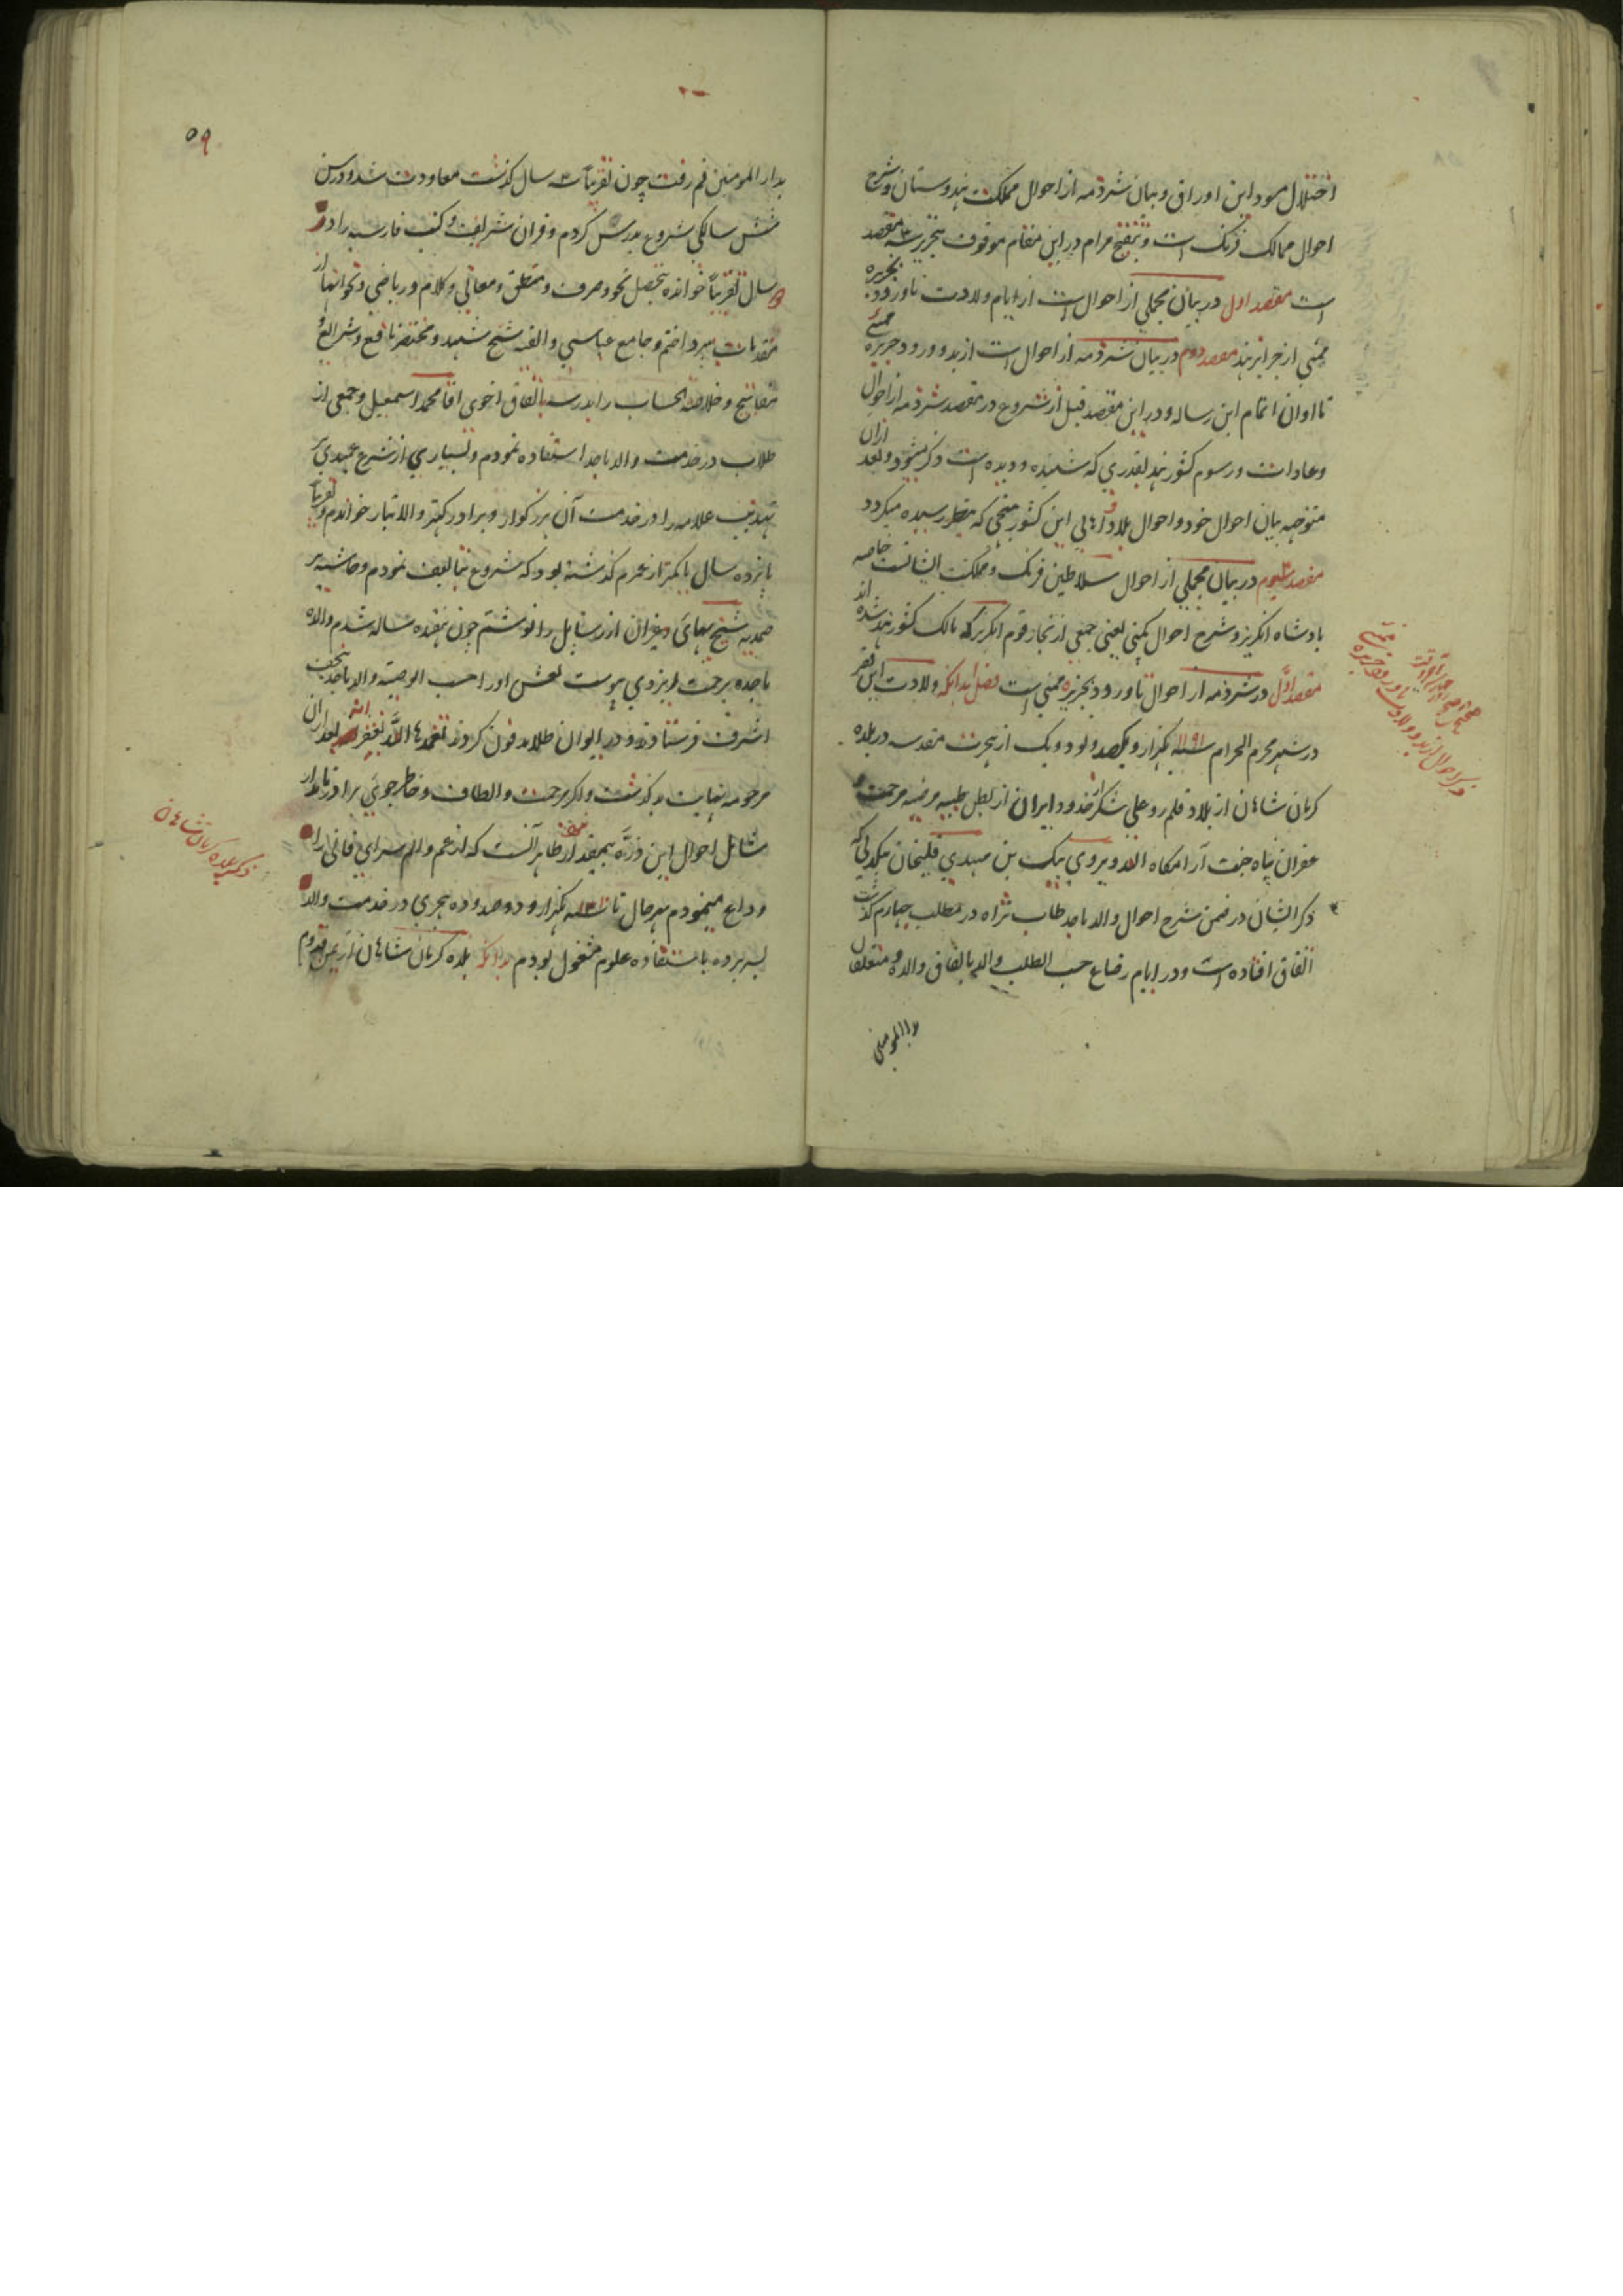 اختلال مسود این اوراق و بیان شرذمه از احوال مملکت هندوستان و شرح
احوال ممالک فرنک است و تنقیح مرام در این مقام موقوف بتحریر سه مقصد
است مقصد اول در بیان مجملی از احوال است از ایام ولادت تا ورود بجزیره
ممبئی از جزایر هند مقصد دوم در بیان شرذمه از احوال است از بدو ورود جزیره ممبئی
تا اوان اتمام این رساله و در این مقصد قبل از شروع در مقصد شرذمه از احوال
و عادات و رسوم کشور هند بقدری که شنیده و دیده است ذکر میشود و بعد ازان
متوجه بیان احوال خود و احوال بلاد و اهالی این کشور منحی که بنظر رسیده میکردد
مقصد سیوم در بیان مجملی از احوال سلاطین فرنک و مملکت ایشانست خاصه
پادشاه انکریز و شرح احوال کمپنی یعنی جمعی از تجار قوم انکریز که مالک کشور هند شده اند
مقصد اول در شرذمه از احوال تا ورود بجزیره ممبئی است فصل بدانکه ولادت این فقیر
در شهر محرم الحرام سنه ۱۱۹۱ یکهزار و یکصد و نود و یک از هجرت مقدسه در بلده
کرمان شاهان از بلاد قلم رو علی شکر از حدود ایران از بطن طیبه مرضیه مرحمت و
غفران پناه جنت آرامکاه الله ویردی بیک بن مهدی قلیخان بیکدلی که
ذکر ایشان در ضمن شرح احوال والد ماجد طاب ثراه در مطلب چهارم کذشت
اتفاق افتاده است و در ایام رضاع حسب الطلب والد باتفاق والده و متعلقان
بدار المومنین
ذکر احوال از بدو ولادت تا ورود جزیره ممبئی
۵۹
بدار المومنین قم رفت چون تقریباً سه سال کذشت معاودت شد و در سن
شش سالکی شروع بدرس کردم و قران شریف و کتب فارسیه را در دو
سال تقریباً خوانده بتحصیل نحو و صرف و منطق و معانی و کلام و ریاضی و نحو انها از
مقدمات پرداختم و جامع عباسی و الفیه شیخ شهید و مختصر نافع و شرایع و
مفاتیح و خلاصة الحساب را بمدرسه باتفاق اخوی اقا محمد اسمعیل و جمعی از
طلاب در خدمت والد ماجد استفاده نمودم و بسیاری از شرح عمیدی بر
تهذیب علامه را در خدمت آن بزرکوار و برادر کهتر والاتبار خواندم و تقریباً
پانزده سال یا کمتر از عمرم کذشته بود که شروع بتالیف نمودم و حاشیه بر
صمدیه شیخ بهائی و غیر ان از رسایل را نوشتم چون هفده ساله شدم والده
ماجده برحمت ایزدی پیوست نعش او را حسب الوصیه والد ماجد بنجف
اشرف فرستاد و در ایوان طلا مدفون کردند تغمدها الله بغفرانه بعد از ان
مرحومه نهایت بد کذشت و اکر مرحمت و الطاف و خاطر جوئی برادر نامدار
شامل احوال این ذره بیمقدار نمیشد ظاهر آنست که از غم و الم سرای فانی را
وداع مینمودم بهر حال تا سنه یکهزار و دوصد و ده هجری در خدمت والد
بسر برده باستفاده علوم مشغول بودم بدانکه بلده کرمان شاهان از
ذکر بلده کرمان شاهان